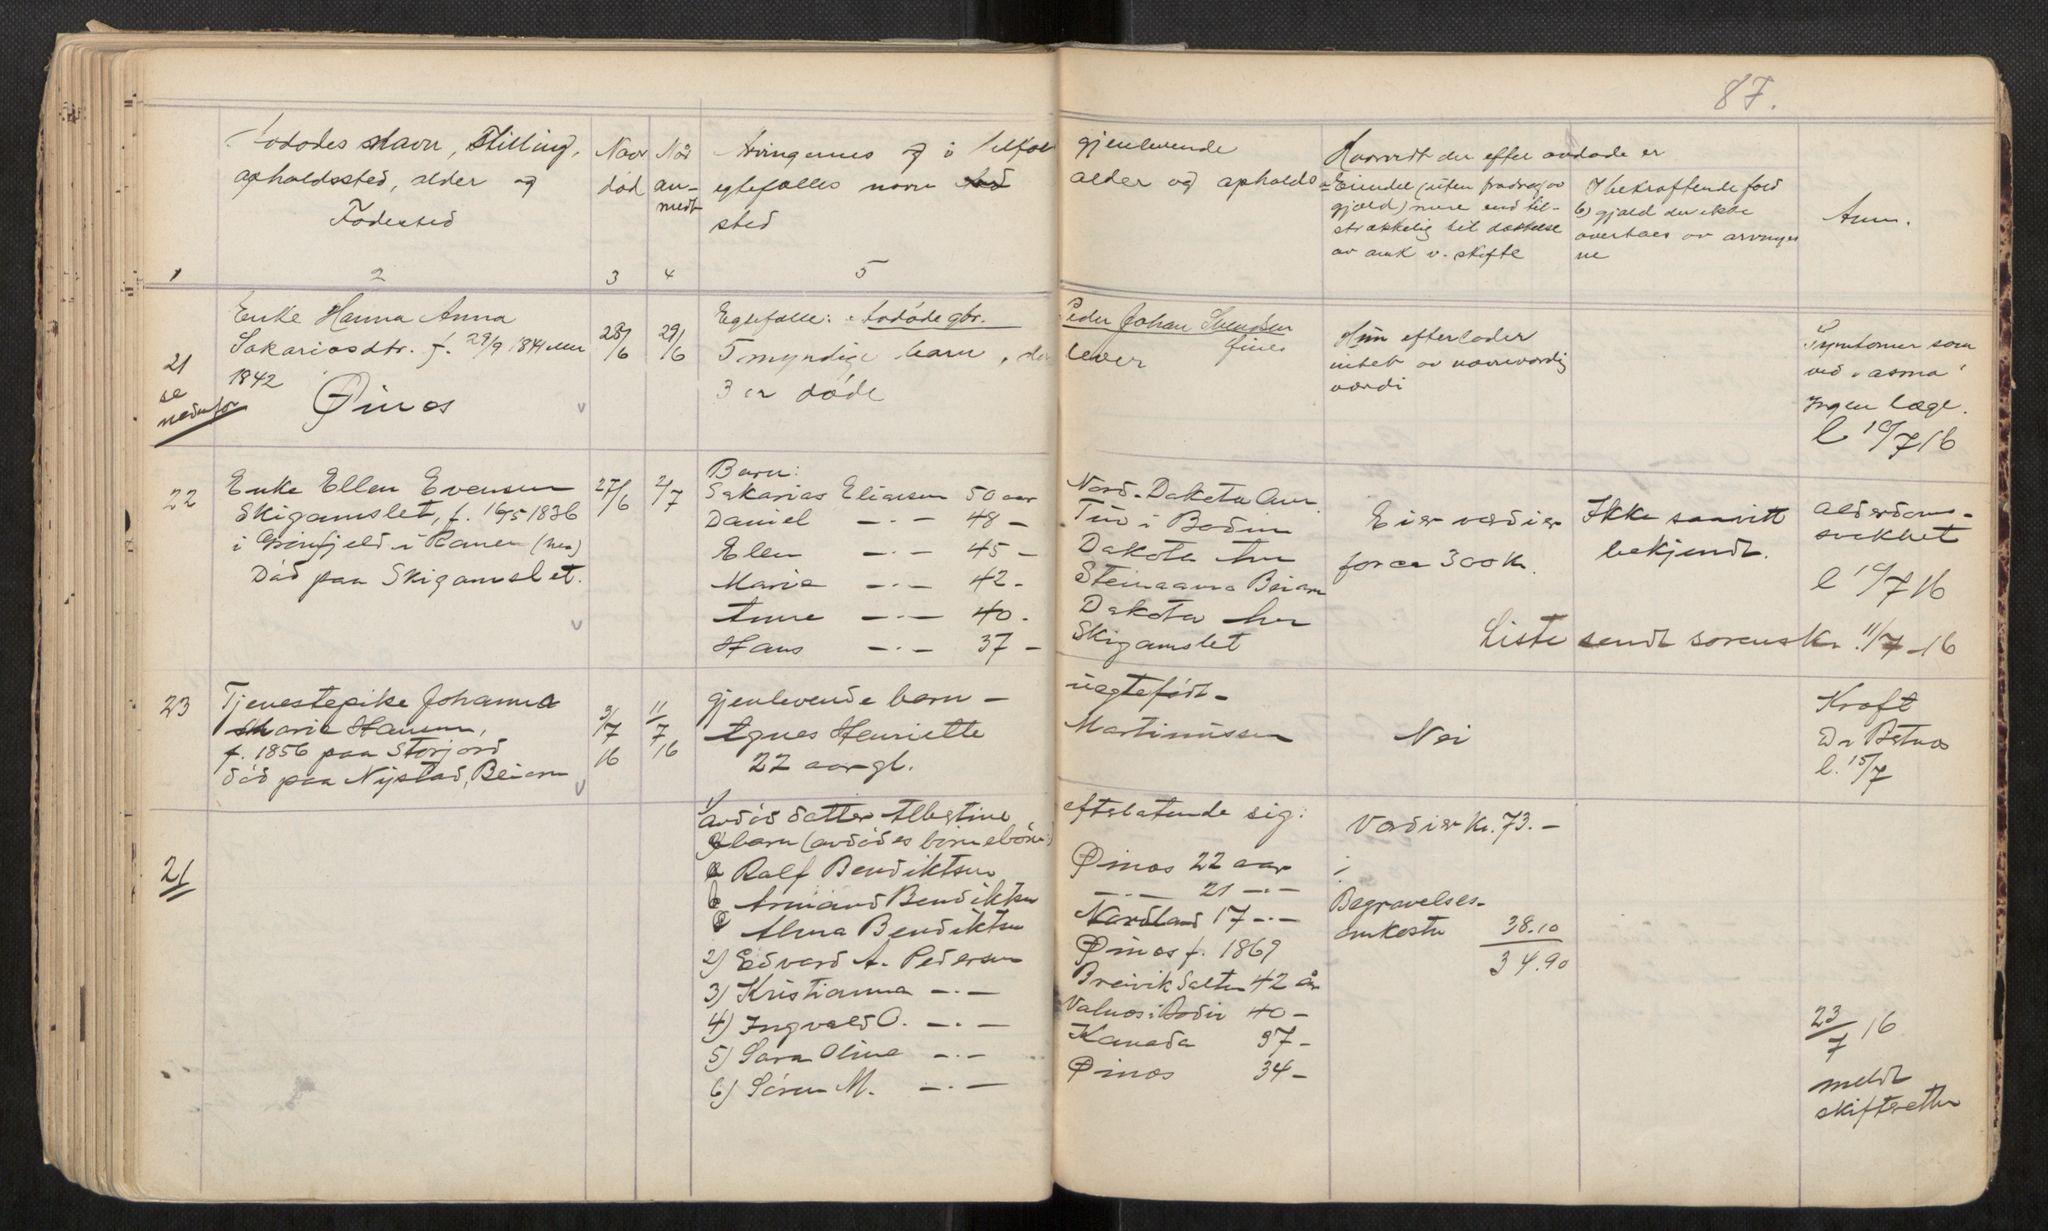 87.
Avdødes Navn, Stilling,
opholdssted, alder og
Fødested
Naar
død
Naar
an-
meldt
Arvingernes og i tilfæl
egtefælles navn
sted
gjenlevende
alder og opholds-
Hvorvidt der efter avdøde er
Eiendel (uten fradrag av
gjæld) mere end til-
strækkelig til dækkelse
av omk v. skifte
I bekræftende fald
b) gjæld der ikke
overtaes av arvinger
ne
Anm.
1 2 3 4 5
21
se
nedenfor
Enke Hanna Anna
Sakariasdtr. f. 29/9 1841 eller
1842
Øines
28/6
29/6
Egtefælle: Avdøde gbr. Peder Johan Svendsen
Øines
5 myndige barn, der lever
3 er døde
Hun efterlader
intet av nævneværdig
værdi
Symtomer som
ved "asma"
Ingen læge.
l 10/7 16
22
Enke Ellen Evensen
Skigamslet, f. 16/5 1836
i Grønfjeld i Ranen (Nes)
Død paa Skigamslet.
27/6
2/7
Barn:
Sakarias Eliassen 50 aar Nord-Dakota Am.
Daniel -·- 48 - Tuv i Bodin
Ellen -·- 45 - Dakota Am
Marie -·- 42 - Steinaamo Beiarn
Anne -·- 40 - Dakota Am
Hans -·- 37 - Skigamslet
Eier værdier
for ca 300 kr.
Ikke saavitt
bekjendt.
Alderdoms-
svakhet
l 10/7 16
Liste sendt sorensk. 11/7-16
23
Tjenestepike Johanna
Marie Hansen,
f. 1856 paa Storjord
død paa Nystad, Beiarn
3/7
16
11/7
16
gjenlevende barn - uegtefødt -
Agnes Henriette Martinussen
22 aar gl.
Nei
Kræft
Dr Betnes
l. 15/7
21
1)
avdød datter Albertine efterlatende sig:
3 barn (avdødes børnebørn:)
a Ralf Bendiktsen Øines 22 aar
b Armand Bendiktsen -·- 21 -·-
c Alma Bendiktsen Nordland 17 -·-
2) Edvard A. Pedersen Øines f. 1869
3) Kristianna -·- Breivik Salten 42 år
4) Ingvald O. -·- Valnes i Bodin 40 -
5) Sara Oline -·- Kanada 37 -
6) Søren M. -·- Øines 34 -
Værdier kr. 73.-
Begravelses-
omkostn 38.10
34.90
23/7 16
meldt
skifteretten